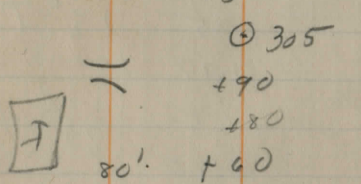 305
+90
+80
80'. +60